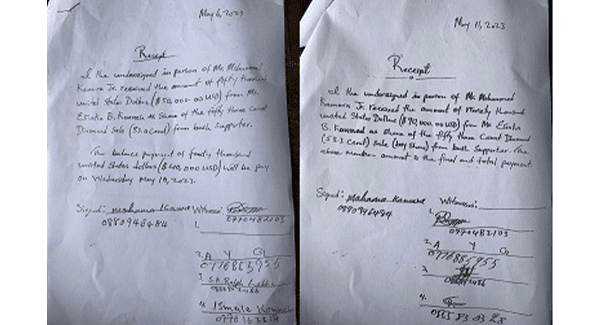 May 6, 2023
Receipt
I the undersigned in person of Mr. Mohammed
Kamara Jr. received the amount of fifty thousand
united States Dollars ($50,000.00 USD) from Mr.
B. as share of the fifty three Carat
Diamond Sale (53.0 Carat) from both Supporter.
The balance payment of fourty thousand
united States dollars ($40,000 USD) will be pay
on Wednesday May 10, 2023.
Signed: Witnesses:
0880946484 0770482103
1.
2. A Y G
0776885955
3. S.A. Ralph
4. Ismale Konneh
May 11, 2023
Receipt
I the undersigned in person of Mr. Mohammed
Kamara Jr. received the amount of Ninety thousand
united States Dollars ($90,000.00 USD) from Mr.
B. as share of the fifty three Carat Diamond
(53.3 Carat) Sale (my share) from both Supporter. The
above mention amount is the final and total payment.
Signed: Witnesses:
0880946484
1.
0770482103
2. A Y G
0776885955
3.
4.